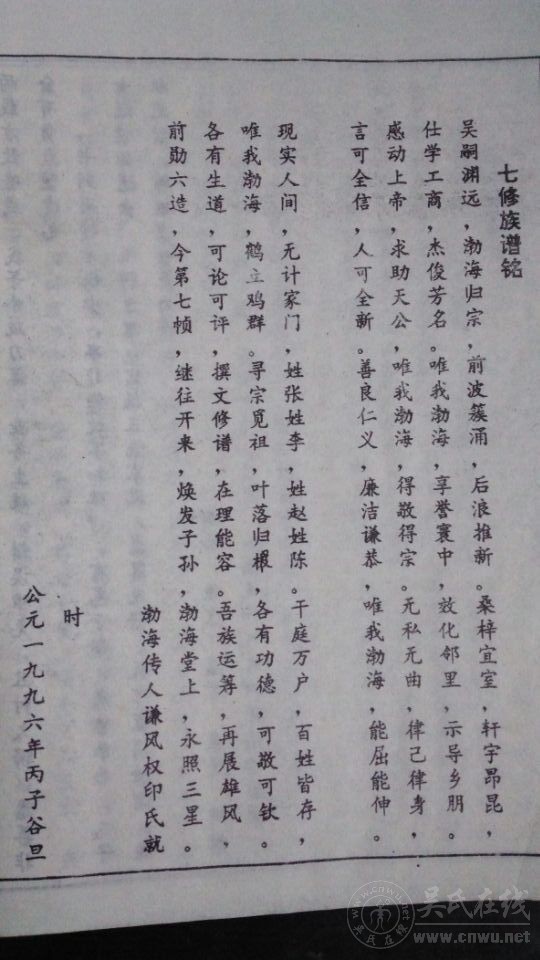 七修族谱铭
吴嗣渊远，渤海归宗，前波簇涌，后浪推新。桑梓宜室，轩宇昂昆，
仕学工商，杰俊芳名。唯我渤海，享誉寰中，效化邻里，示导乡朋。
感动上帝，求助天公，唯我渤海，得敬得宗。无私无曲，律己律身，
言可全信，人可全新。善良仁义，廉洁谦恭，唯我渤海，能屈能伸。
现实人间，无计家门，姓张姓李，姓赵姓陈。千庭万户，百姓皆存，
唯我渤海，鹤立鸡群。寻宗觅祖，叶落归根，各有功德，可敬可钦。
各有生道，可论可评，撰文修谱，在理能容。吾族运筹，再展雄风，
前勋六造，今第七帧，继往开来，焕发子孙，渤海堂上，永照三星。
渤海传人谦风权印氏就
时
公元一九九六年丙子谷旦
吴氏在线
www.cnwu.net